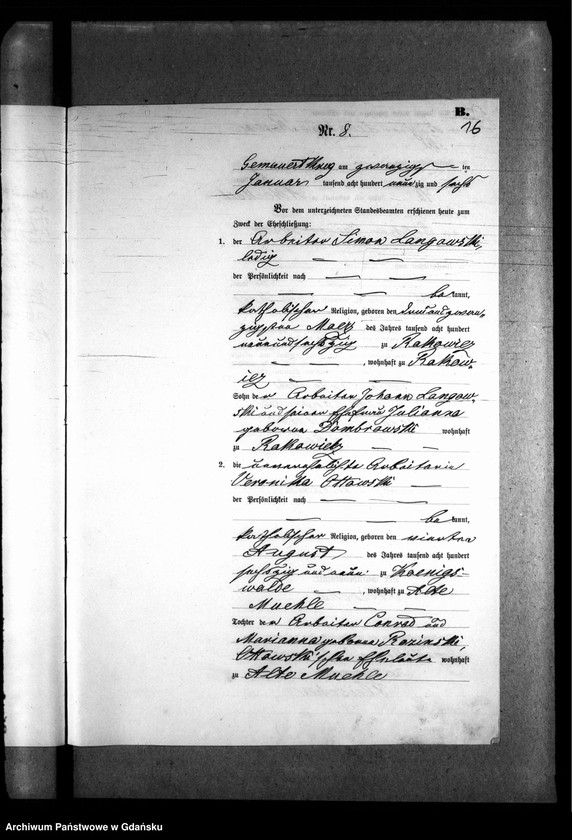 B.
16
Nr. 8.
Gemauert Krug am zwanzigsten
Januar tausend acht hundert neunzig und sechs
Vor dem unterzeichneten Standesbeamten erschienen heute zum
Zweck der Eheschließung:
1. der Arbeiter Simon Langowski,
ledig
der Persönlichkeit nach
be kannt,
katholischer Religion, geboren den
März des Jahres tausend acht hundert
neunundsechszig zu Rakowiec
, wohnhaft zu Rakow-
iec
Sohn des Arbeiter Johann Langow-
ski und seiner Ehefrau Julianna
geborene Dombrowski wohnhaft
zu Rakowietz
2. die unverehelichte Arbeiterin
Veronika Ottowski
der Persönlichkeit nach
be kannt,
katholischer Religion, geboren den vierten
August des Jahres tausend acht hundert
sechszig und neun zu Koenigs-
walde , wohnhaft zu Alte
Muehle
Tochter der Arbeiter Conrad und
Marianna geborene Rozinski,
Ottowski'schen Eheleute wohnhaft
zu Alte Muehle
Archiwum Państwowe w Gdańsku